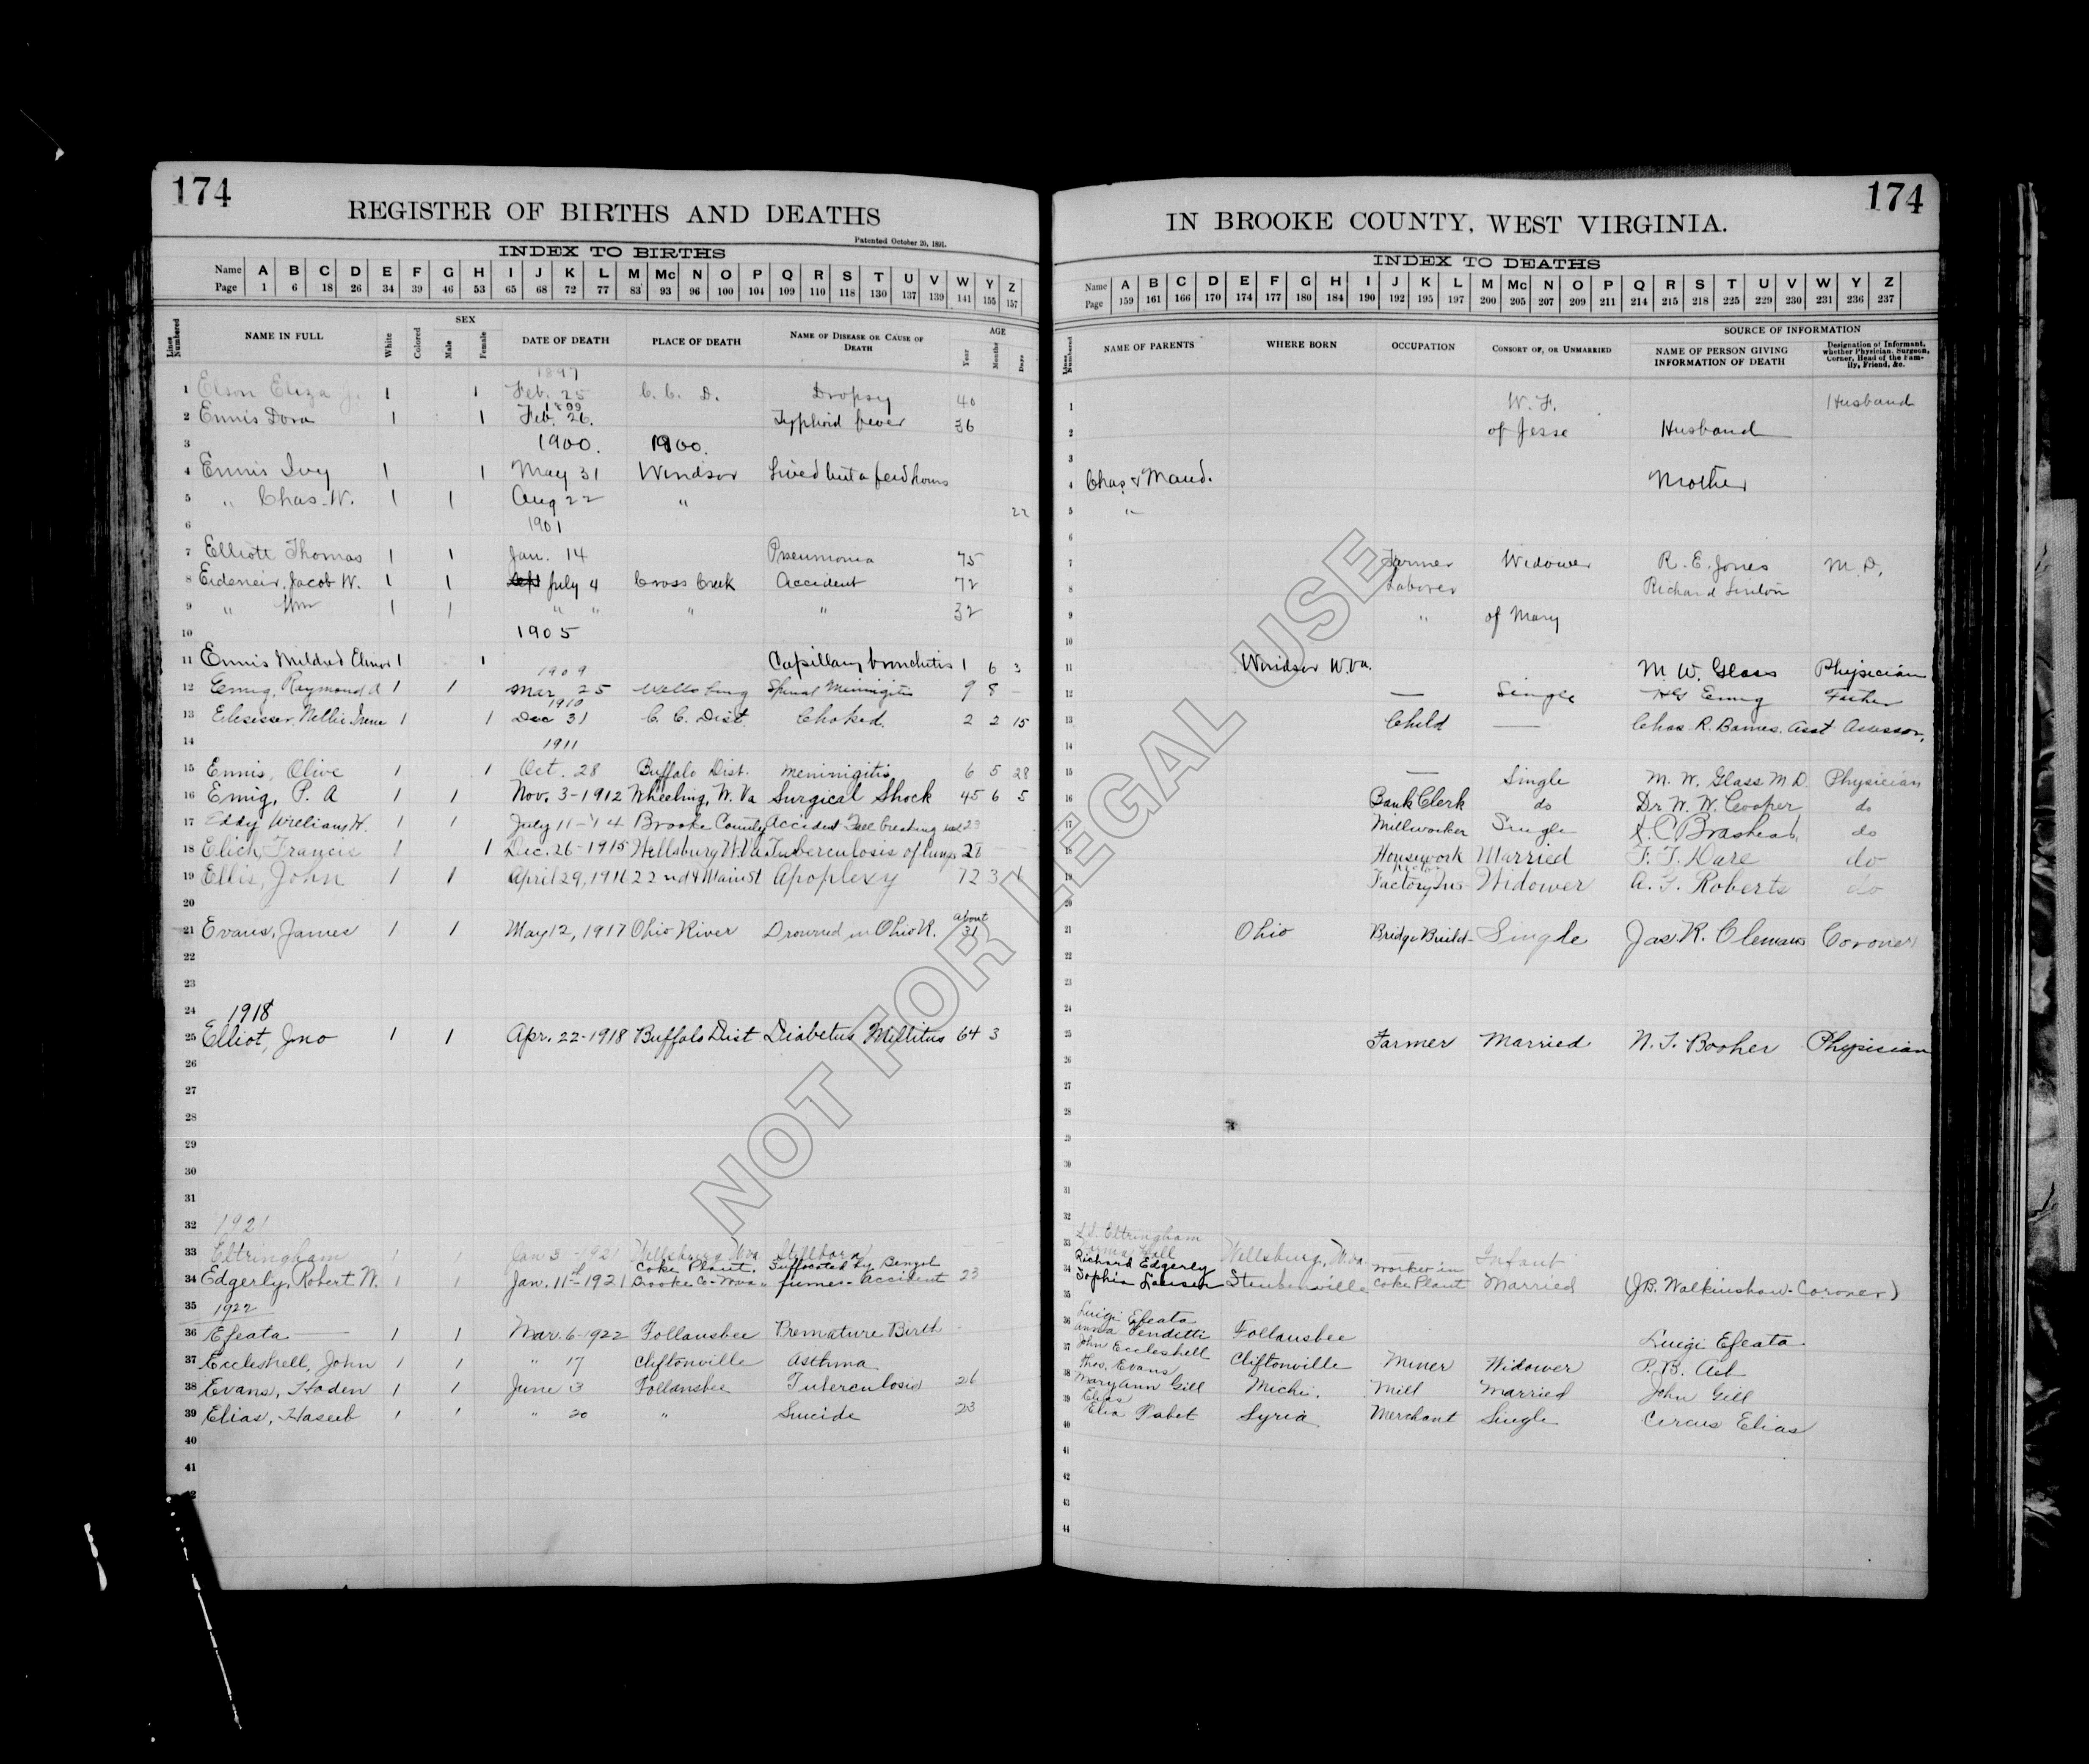 174
REGISTER OF BIRTHS AND DEATHS
Patented October 20, 1891.
INDEX TO BIRTHS
Name A B C D E F G H I J K L M Mc N O P Q R S T U V W Y Z
Page 1 6 18 26 34 39 46 53 65 68 72 77 83 93 96 100 104 109 110 118 130 137 139 141 155 157
Lines Numbered NAME IN FULL White Colored SEX Male Female DATE OF DEATH PLACE OF DEATH NAME OF DISEASE OR CAUSE OF DEATH AGE Year Months Days
1897
1 Elson Eliza J. 1 1 Feb. 25 C. C. D. Dropsy 40
1899
2 Ennis Dora 1 1 Feb. 26. Typhoid fever 36
3 1900. 1900.
4 Ennis Ivy 1 1 May 31 Windsor Lived but a few hours
5 " Chas. W. 1 1 Aug 22 " 22
6 1901
7 Elliott Thomas 1 1 Jan. 14 Pneumonia 75
8 Jacob W. 1 1 July 4 Cross Creek Accident 72
9 " Wm 1 1 " " " " 32
10 1905
11 Ennis Mildred Elinor 1 1 Capillary bronchitis 1 6 3
1909
12 Emig, Raymond A 1 1 Mar 25 Wellsburg Spinal Meningitis 9 8 -
1910
13 Nellie Irene 1 1 Dec 31 C. C. Dist. Choked. 2 2 15
14 1911
15 Ennis, Olive 1 1 Oct. 28 Buffalo Dist. Meninigitis 6 5 28
16 Emig, P. A 1 1 Nov. 3-1912 Wheeling, W. Va Surgical Shock 45 6 5
17 Eddy William H. 1 1 July 11-'14 Brooke County Accident Fall breaking 23
18 Elich, Francis 1 1 Dec. 26-1915 Wellsburg W.Va Tuberculosis of lungs 28 - -
19 Ellis, John 1 1 April 29, 1916 22nd & Main St Apoplexy 72 3 1
20
21 Evans, James 1 1 May 12, 1917 Ohio River Drowned in Ohio R. about 31
22
23
24 1918
25 Elliot, Jno 1 1 Apr. 22-1918 Buffalo Dist Diabetus Mellitus 64 3
26
27
28
29
30
31
32 1921
33 Eltringham 1 1 Jan 3-1921 Wellsburg W.va Stillborn - -
34 Edgerly, Robert W. 1 1 Jan. 11th-1921 Coke Plant. Brooke Co-W.va. Suffocated by Benzol fumes-Accident 23
35 1922
36 Efeata 1 1 Mar. 6-1922 Follansbee Premature Birth -
37 Eccleshell, John 1 1 " 17 Cliftonville Asthma
38 Evans, Haden 1 1 June 3 Follansbee Tuberculosis 26
39 Elias, Haseeb 1 1 " 20 " Suicide 23
40
41
174
IN BROOKE COUNTY, WEST VIRGINIA.
INDEX TO DEATHS
Name A B C D E F G H I J K L M Mc N O P Q R S T U V W Y Z
Page 159 161 166 170 174 177 180 184 190 192 195 197 200 205 207 209 211 214 215 218 225 229 230 231 236 237
Lines Numbered NAME OF PARENTS WHERE BORN OCCUPATION CONSORT OF, OR UNMARRIED SOURCE OF INFORMATION NAME OF PERSON GIVING INFORMATION OF DEATH Designation of Informant, whether Physician, Surgeon, Corner, Head of the Family, Friend, &c.
1 W. F. Husband
2 of Jesse Husband
3
4 Chas & Maud. Mother
5 "
6
7 Farmer Widower R. E. Jones M. D.
8 Laborer Richard
9 " of Mary
10
11 Windsor W.Va. M. W. Glass Physician
12 — Single H G Emig Father
13 Child — Chas. R. Barnes. Asst Assessor,
14
15 — Single M. W. Glass M. D. Physician
16 Bank Clerk do Dr W. W. Cooper do
17 Millworker Single Brashear, do
18 Housework Married F. T. Dare do
19 Factory Ins- Widower A. G. Roberts do
20
21 Ohio Bridge Build- Single Jas. R. Clemens Coroner
22
23
24
25 Farmer Married N. T. Booher Physician
26
27
28
29
30
31
32
33 L.S. Eltringham Hall Wellsburg, W.va. Infant
34 Richard Edgerly Sophia Steubenville worker in Coke Plant Married (J.B. Walkinshaw-Coroner)
35
36 Luigi Efeata Anna Penditti Follansbee Luigi Efeata
37 John Eccleshell Cliftonville Miner Widower P. B.
38 Thos. Evans Mary Ann Gill Michi. Mill Married John Gill
39 Elias Elia Syria Merchant Single Elias
40
41
42
43
44
NOT FOR LEGAL USE